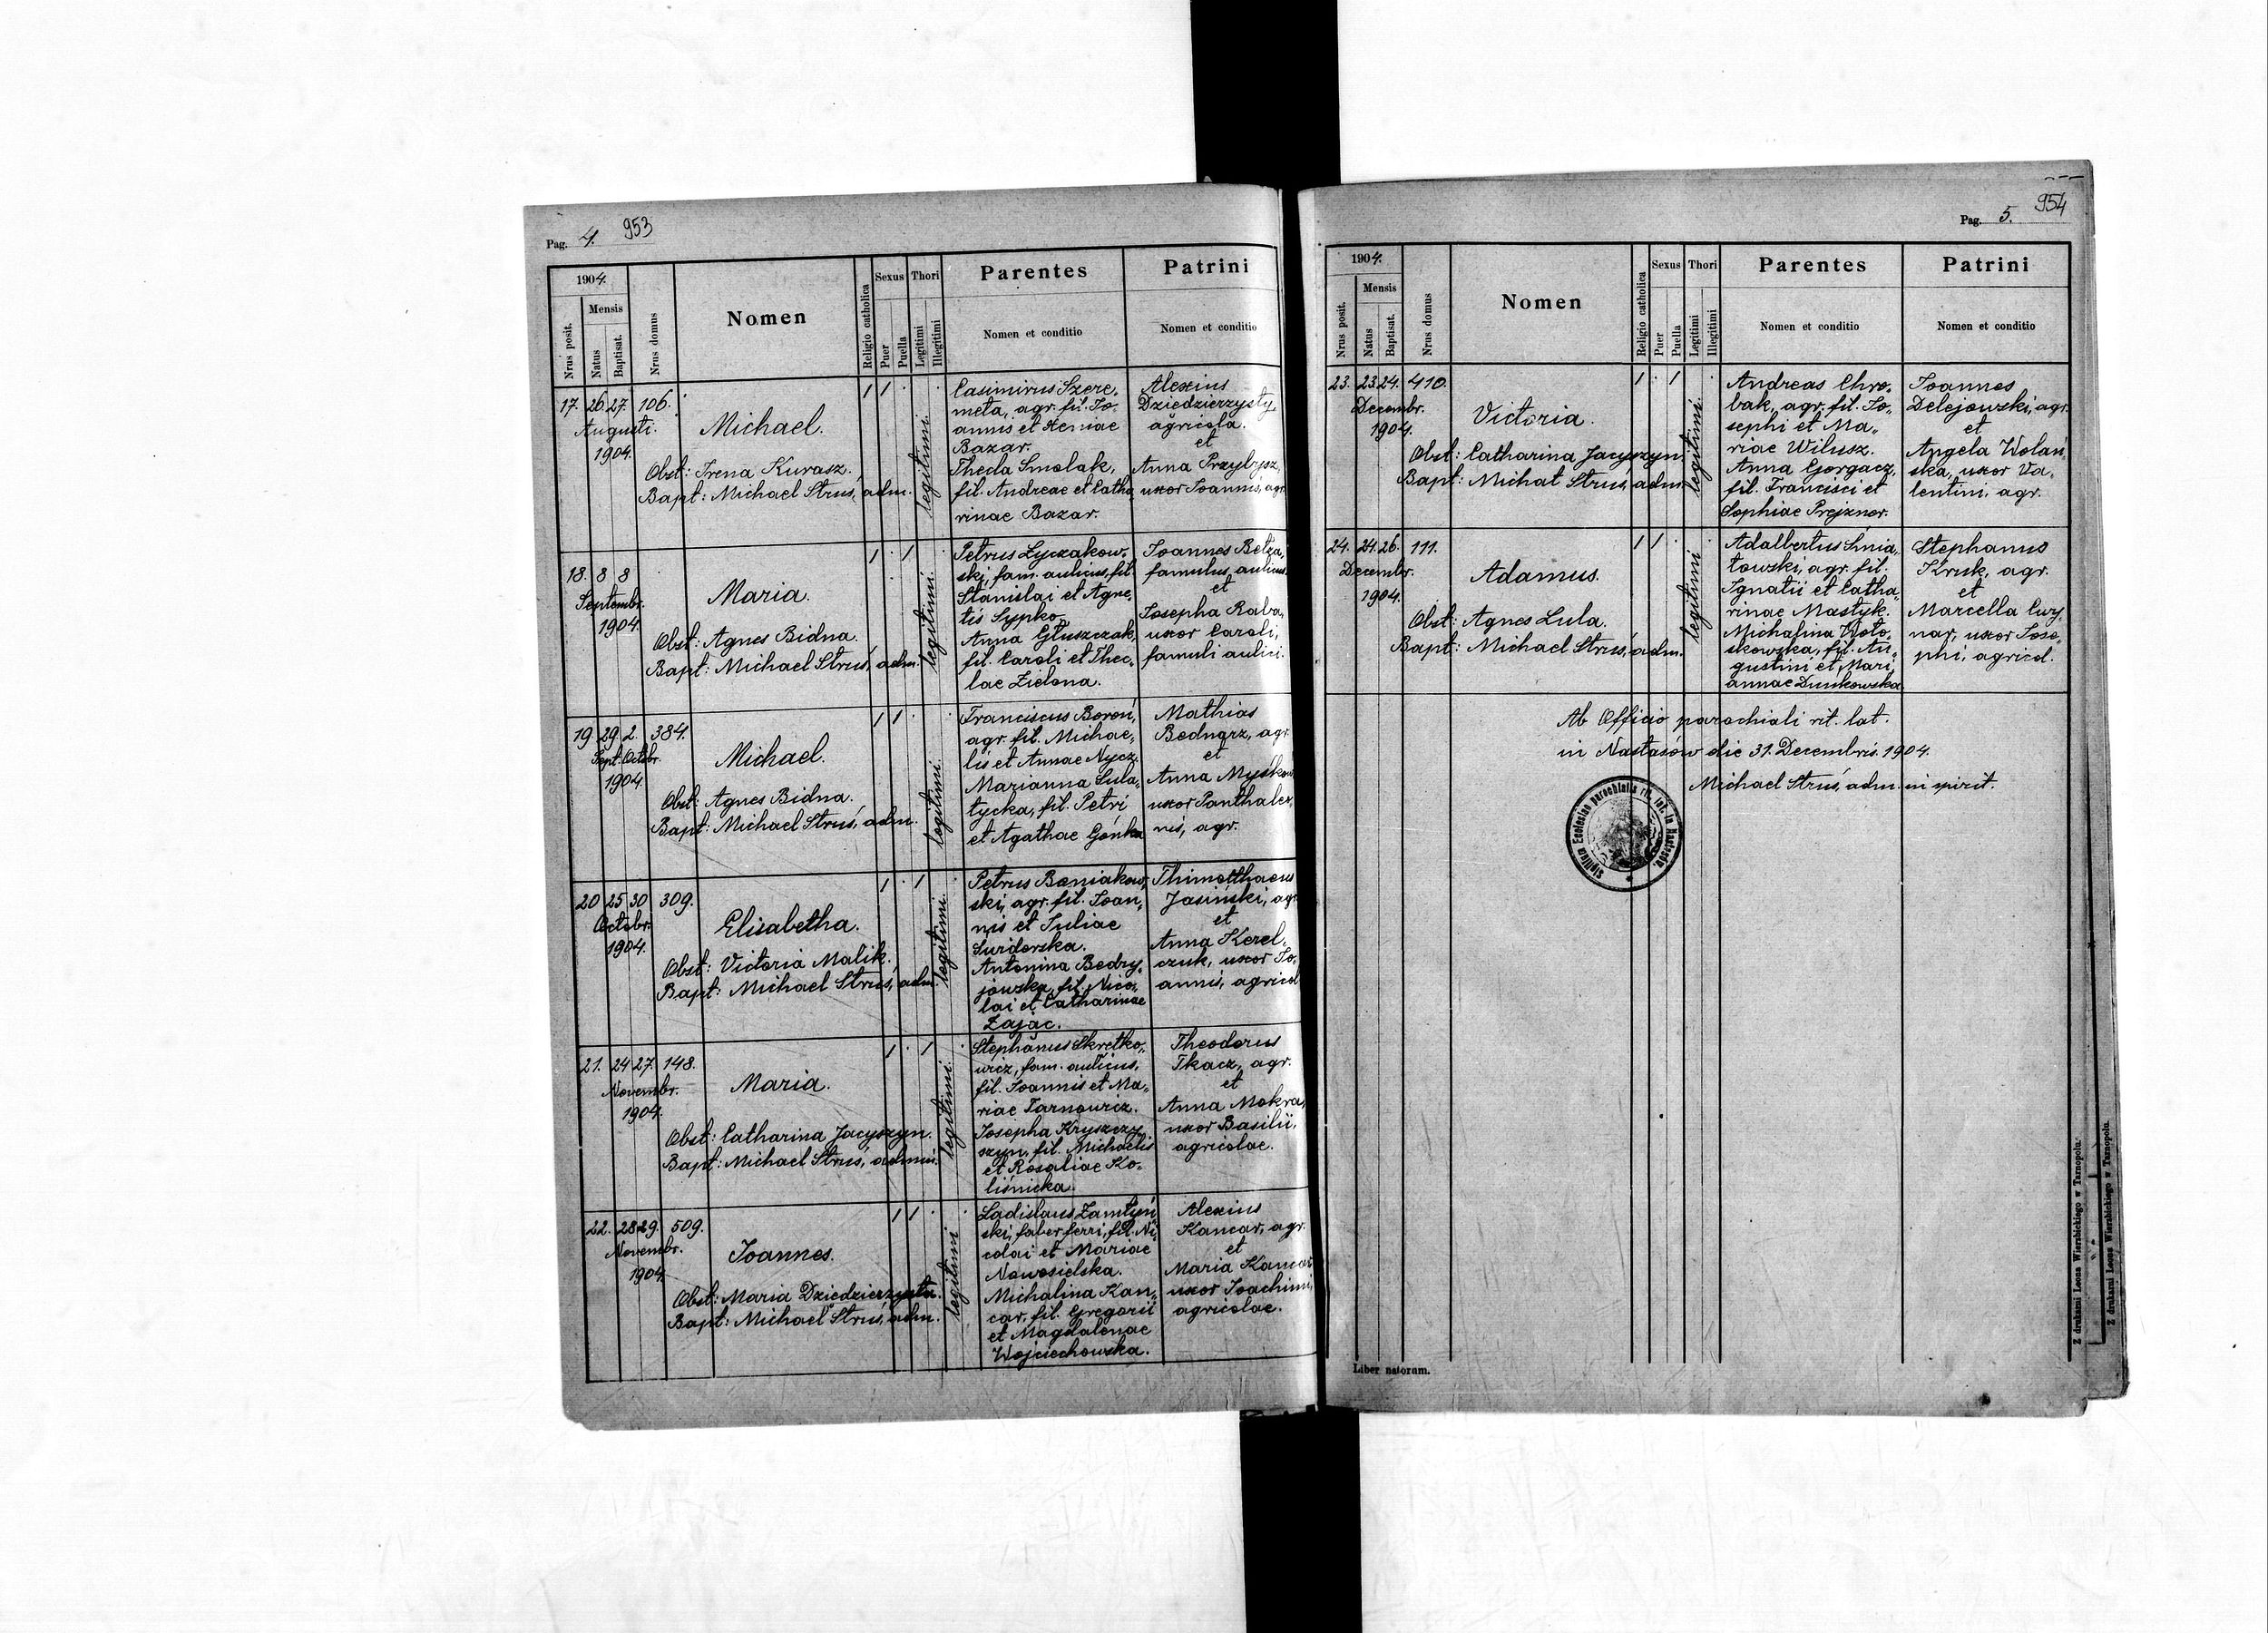 Pag. 4. 953
1904.
Nrus posit.
Mensis
Natus
Baptisat.
Nrus domus
Nomen
Religio catholica
Sexus
Puer
Puella
Thori
Legitimi
Illegitimi
Parentes
Nomen et conditio
Patrini
Nomen et conditio
17. 26. 27. 106.
Augusti.
1904.
Michael.
Obst: Irena Kurasz.
Bapt: Michael Struś, adm.
legitimi.
Casimirus Szere„
meta, agr. fil. Jo„
annis et Xeniae
Bazar.
Theda Smolak,
fil. Andreae et Catha
rinae Bazar.
Alexius
Dziedzierzysty,
agricola.
et
Anna Przybysz,
uxor Joannis, agr.
18. 8 8
Septembr.
1904.
Maria.
Obst: Agnes Bidna.
Bapt: Michael Struś, adm.
legitimi.
Petrus Łyczakow„
ski, fam. aulicus, fil.
Stanislai et Agne„
tis Sypko.
Anna Głuszczak,
fil. Caroli et Thec„
lae Zielona.
Joannes
famulus aulicus.
et
Josepha Raba,
uxor Caroli,
famuli aulici.
19. 29. 2. 384.
Sept. Octobr.
1904.
Michael.
Obst: Agnes Bidna.
Bapt: Michael Struś, adm.
legitimi.
Franciscus Boroń,
agr. fil. Michae„
lis et Annae Nycz.
Marianna Sula„
tycka, fil. Petri
et Agathae Gońka
Mathias
Bednarz, agr.
et
Anna
uxor Panthaleo„
nis, agr.
20 25 30 309.
Octobr.
1904.
Elisabetha.
Obst: Victoria Malik.
Bapt: Michael Struś, adm.
legitimi.
Petrus Baniakow„
ski, agr. fil. Joan„
nis et Juliae
Surdorska.
Antonina Bedry„
jowska, fil. Nico„
lai et Catharinae
Zając.
Thimotthaeus
Jasiński, agr.
et
Anna Kerel„
czuk, uxor Jo„
annis, agricol
21. 24 27. 148.
Novembr.
1904.
Maria.
Obst: Catharina Jacyszyn.
Bapt: Michael Struś, admin.
legitimi.
Stephanus Skretko„
wicz, fam. aulicus,
fil. Joannis et Ma„
riae Tarnowicz.
Josepha Kryszczy„
szyn, fil. Michaelis
et Rosaliae Ko„
liśnicka.
Theodorus
Tkacz, agr.
et
Anna Mokra,
uxor Basilii,
agricolae.
22. 28 29. 509.
Novembr.
1904.
Joannes.
Obst: Maria Dziedzierzysta.
Bapt: Michael Struś, adm.
legitimi
Ladislaus Zamłyń„
ski, faber ferri, fil. Ni„
colai et Mariae
Nowosielska.
Michalina Kan„
car, fil. Gregorii
et Magdalenae
Wojciechowska.
Alexius
Kancar, agr.
et
Maria Kancar
uxor Joachimi,
agricolae.
Pag. 5. 954
1904.
Nrus posit.
Mensis
Natus
Baptisat.
Nrus domus
Nomen
Religio catholica
Sexus
Puer
Puella
Thori
Legitimi
Illegitimi
Parentes
Nomen et conditio
Patrini
Nomen et conditio
23. 23 24. 410.
Decembr.
1904.
Victoria.
Obst: Catharina Jacyszyn
Bapt: Michał Struś, adm.
legitimi.
Andreas Chro„
bak, agr. fil. Jo„
sephi et Ma„
riae Wilusz.
Anna Gorgacz,
fil. Francisci et
Sophiae Prejznor.
Joannes
Delejowski, agr.
et
Angela Wolań„
ska, uxor Va„
lentini, agr.
24. 24. 26. 111.
Decembr.
1904.
Adamus.
Obst: Agnes Lula.
Bapt: Michael Struś, adm.
legitimi
Adalbertus Śnia„
towski, agr. fil.
Ignatii et Catha„
rinae Mastyk.
Michalina Woto„
skowska, fil. Au„
gustini et Mari
annae Dunkowska
Stephanus
Kruk, agr.
et
Marcella Cwy„
nar, uxor Jose„
phi, agricol.
Ab Officio parochiali rit. lat.
in Nastasów die 31. Decembris. 1904.
Michael Struś, adm. in spirit.
Sigillum Ecclesiae parochialis rit. lat. in Nastasów.
Liber natorum.
Z drukarni Leona Wierzbickiego w Tarnopolu.
Z drukarni Leona Wierzbickiego w Tarnopolu.